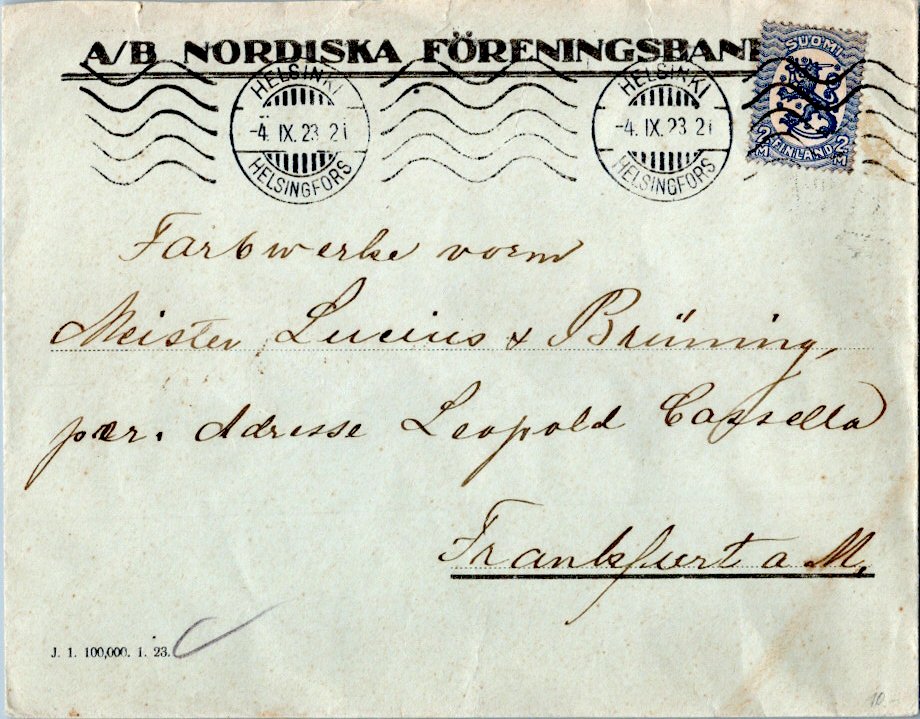 A/B NORDISKA FÖRENINGSBANK
SUOMI
2 M FINLAND 2 M
HELSINKI
-4. IX. 23 21
HELSINGFORS
HELSINKI
-4. IX. 23 21
HELSINGFORS
Farbwerke vorm
Meister Lucius & Brüning,
per. Adresse Leopold Cassella
Frankfurt a M.
J. 1. 100,000. 1. 23.
10.-